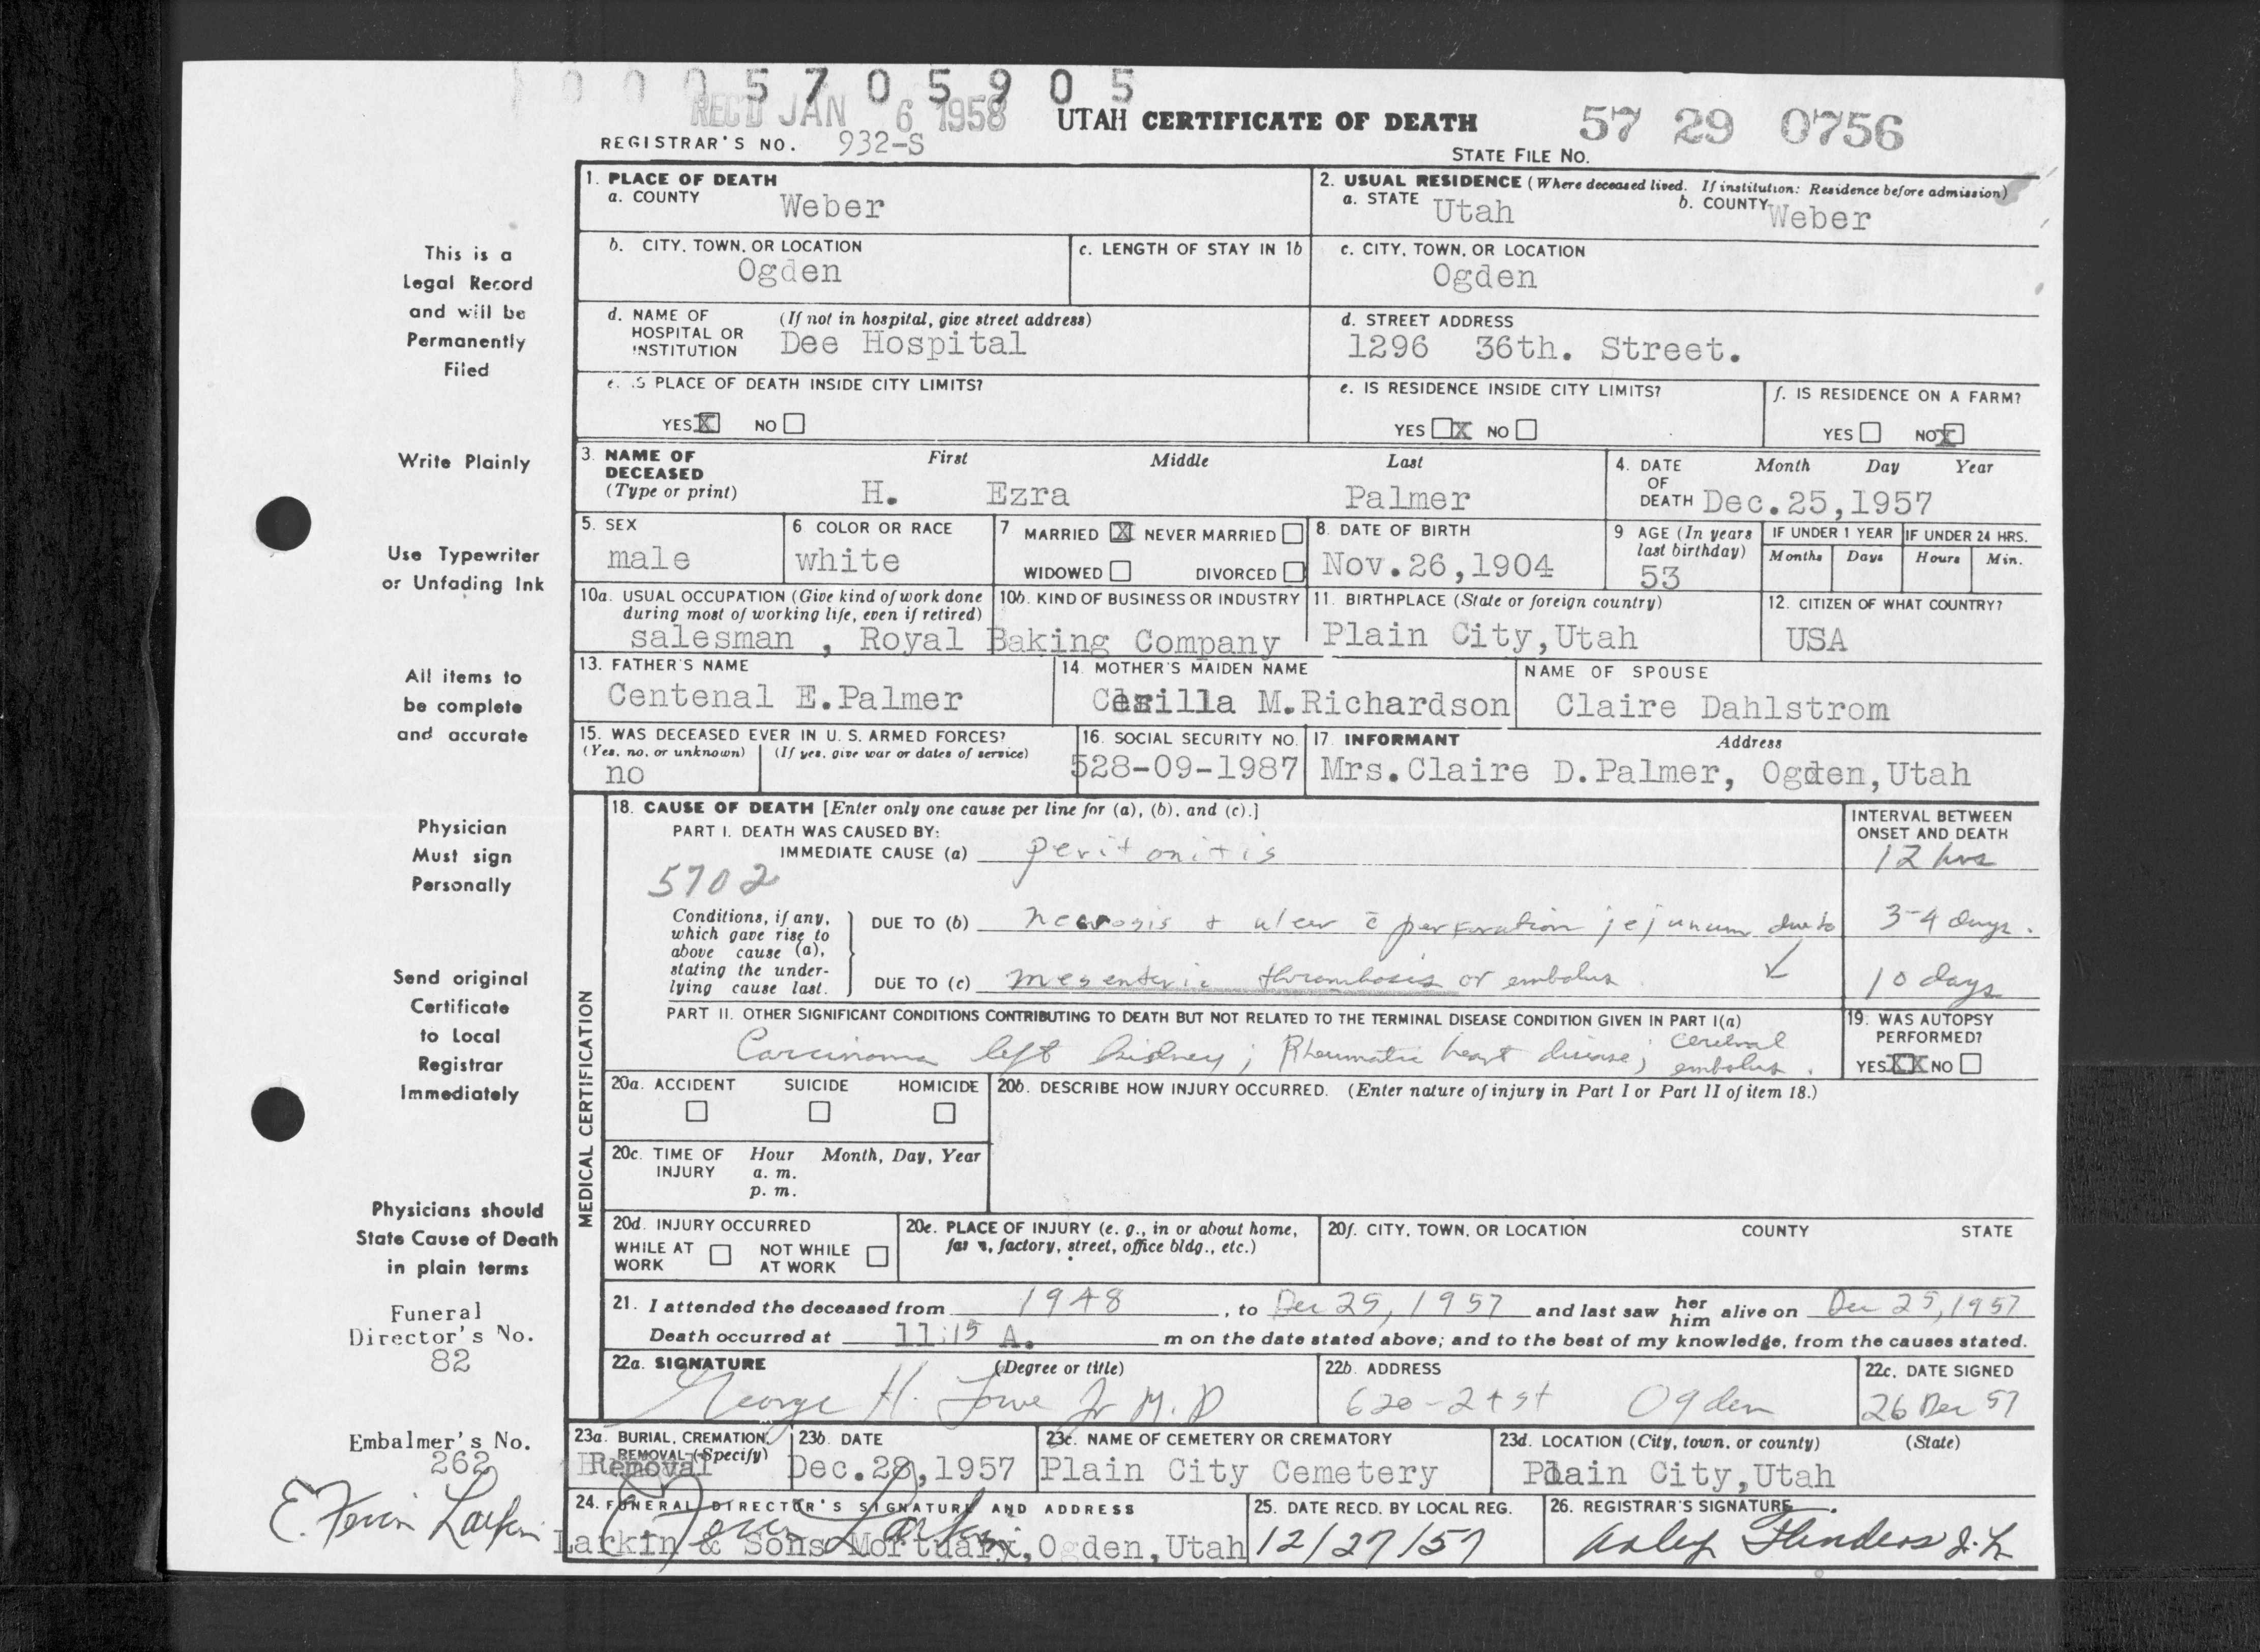 0005705905
REC'D JAN 6 1958
UTAH CERTIFICATE OF DEATH
57 29 0756
REGISTRAR'S NO. 932-S
STATE FILE NO.
This is a
Legal Record
and will be
Permanently
Filed
Write Plainly
Use Typewriter
or Unfading Ink
All items to
be complete
and accurate
Physician
Must sign
Personally
Send original
Certificate
to Local
Registrar
Immediately
Physicians should
State Cause of Death
in plain terms
Funeral
Director's No.
82
Embalmer's No.
262
E. Larkin
1. PLACE OF DEATH
a. COUNTY Weber
2. USUAL RESIDENCE (Where deceased lived. If institution: Residence before admission)
a. STATE Utah b. COUNTY Weber
b. CITY, TOWN, OR LOCATION
Ogden
c. LENGTH OF STAY IN 1b
c. CITY, TOWN, OR LOCATION
Ogden
d. NAME OF (If not in hospital, give street address)
HOSPITAL OR
INSTITUTION Dee Hospital
d. STREET ADDRESS
1296 36th. Street.
e. IS PLACE OF DEATH INSIDE CITY LIMITS?
YES X NO
e. IS RESIDENCE INSIDE CITY LIMITS?
YES X NO
f. IS RESIDENCE ON A FARM?
YES NO X
3. NAME OF First Middle Last
DECEASED
(Type or print) H. Ezra Palmer
4. DATE Month Day Year
OF
DEATH Dec.25,1957
5. SEX
male
6 COLOR OR RACE
white
7 MARRIED X NEVER MARRIED
WIDOWED DIVORCED
8. DATE OF BIRTH
Nov.26,1904
9 AGE (In years
last birthday)
53
IF UNDER 1 YEAR
Months Days
IF UNDER 24 HRS.
Hours Min.
10a. USUAL OCCUPATION (Give kind of work done
during most of working life, even if retired)
10b. KIND OF BUSINESS OR INDUSTRY
salesman , Royal Baking Company
11. BIRTHPLACE (State or foreign country)
Plain City,Utah
12. CITIZEN OF WHAT COUNTRY?
USA
13. FATHER'S NAME
Centenal E.Palmer
14. MOTHER'S MAIDEN NAME
M.Richardson
NAME OF SPOUSE
Claire Dahlstrom
15. WAS DECEASED EVER IN U. S. ARMED FORCES?
(Yes, no, or unknown) (If yes, give war or dates of service)
no
16. SOCIAL SECURITY NO.
528-09-1987
17. INFORMANT Address
Mrs.Claire D.Palmer, Ogden,Utah
MEDICAL CERTIFICATION
18. CAUSE OF DEATH [Enter only one cause per line for (a), (b), and (c).]
PART I. DEATH WAS CAUSED BY:
IMMEDIATE CAUSE (a) peritonitis
INTERVAL BETWEEN
ONSET AND DEATH
12 hrs
5702
Conditions, if any,
which gave rise to
above cause (a),
stating the under-
lying cause last.
DUE TO (b) necrosis + ulcer c̄ perforation jejunum due to
3-4 days.
DUE TO (c) mesenteric thrombosis or embolus
10 days
PART II. OTHER SIGNIFICANT CONDITIONS CONTRIBUTING TO DEATH BUT NOT RELATED TO THE TERMINAL DISEASE CONDITION GIVEN IN PART I(a)
Carcinoma left kidney; Rheumatic heart disease; cerebral
embolus.
19. WAS AUTOPSY
PERFORMED?
YES XX NO
20a. ACCIDENT SUICIDE HOMICIDE
20b. DESCRIBE HOW INJURY OCCURRED. (Enter nature of injury in Part I or Part II of item 18.)
20c. TIME OF Hour Month, Day, Year
INJURY a. m.
p. m.
20d. INJURY OCCURRED
WHILE AT NOT WHILE
WORK AT WORK
20e. PLACE OF INJURY (e. g., in or about home,
farm, factory, street, office bldg., etc.)
20f. CITY, TOWN, OR LOCATION COUNTY STATE
21. I attended the deceased from 1948, to Dec 25, 1957 and last saw her
him alive on Dec 25, 1957
Death occurred at 11:15 A. m on the date stated above; and to the best of my knowledge, from the causes stated.
22a. SIGNATURE (Degree or title)
George H. Lowe Jr M.D
22b. ADDRESS
Ogden
22c. DATE SIGNED
26 Dec 57
23a. BURIAL, CREMATION,
REMOVAL (Specify)
Removal
23b. DATE
Dec.28,1957
23c. NAME OF CEMETERY OR CREMATORY
Plain City Cemetery
23d. LOCATION (City, town, or county) (State)
Plain City,Utah
24. FUNERAL DIRECTOR'S SIGNATURE AND ADDRESS
Larkin & Sons Mortuary,Ogden,Utah
25. DATE RECD. BY LOCAL REG.
12/27/57
26. REGISTRAR'S SIGNATURE